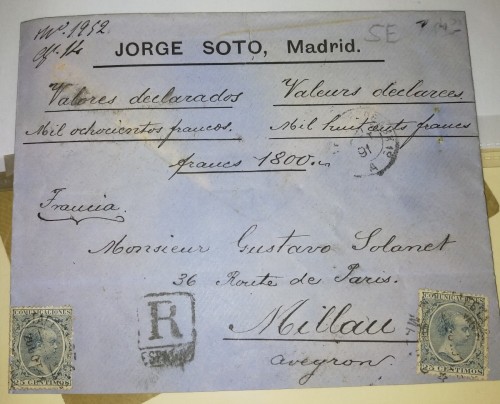 Nº. 1952
JORGE SOTO, Madrid.
SE
Valores declarados
Valeurs declarees
Mil ochocientos francos.
Mil huit cents francs
francs 1800
91
Francia.
Monsieur Gustavo Solanet
36 Route de Paris.
R
Millau
Aveyron.
COMUNICACIONES
25 CENTIMOS
COMUNICACIONES
25 CENTIMOS